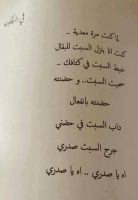 في البلكون
لما كنت مرة معدية ..
كنت انا بنزل السبت للبقال
خيط السبت في كتافك ..
سحبت السبت .. و حضنته
حضنته بانفعال
داب السبت في حضني
جرح السبت صدري
اه يا صدري .. اه يا صدري